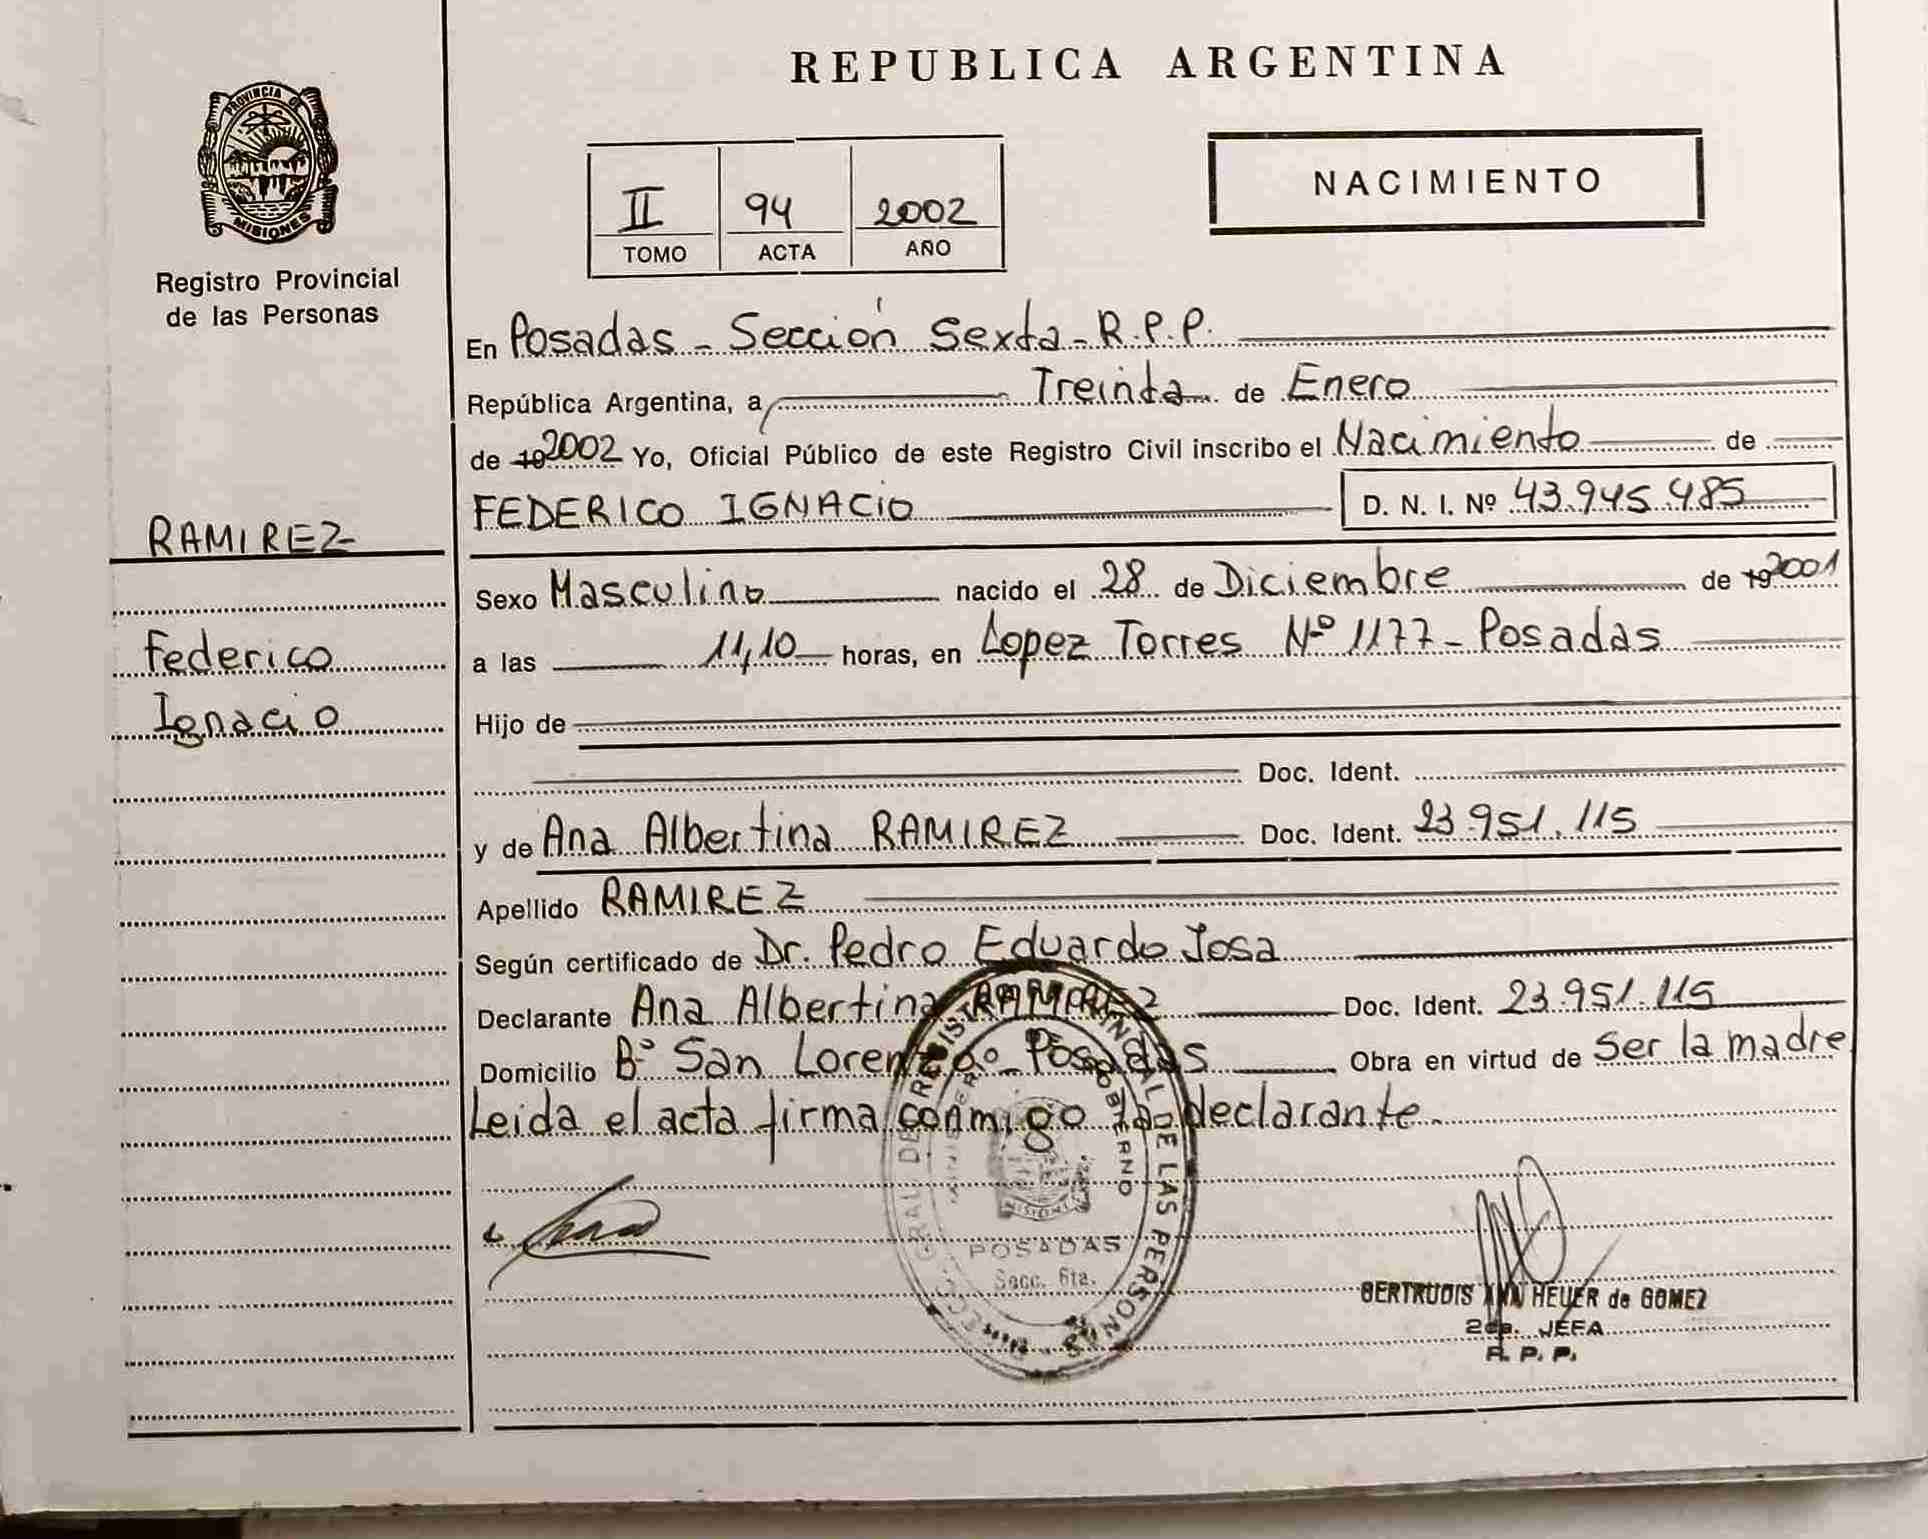 REPUBLICA ARGENTINA
PROVINCIA DE
MISIONES
Registro Provincial
de las Personas
II 94 2002
TOMO ACTA AÑO
NACIMIENTO
En Posadas - Sección Sexta - R.P.P.
República Argentina, a Treinta de Enero
de 19 2002 Yo, Oficial Público de este Registro Civil inscribo el Nacimiento de
FEDERICO IGNACIO D. N. I. Nº 43.945.485
RAMIREZ
Federico
Ignacio
Sexo Masculino nacido el 28 de Diciembre de 19 2001
a las 11,10 horas, en Lopez Torres Nº 1177 - Posadas
Hijo de
Doc. Ident.
y de Ana Albertina RAMIREZ Doc. Ident. 23.951.115
Apellido RAMIREZ
Según certificado de Dr. Pedro Eduardo Josa
Declarante Ana Albertina RAMIREZ Doc. Ident. 23.951.115
Domicilio Bº San Lorenzo - Posadas Obra en virtud de Ser la madre
Leida el acta firma conmigo la declarante.
GRAL DE REGISTRO PROVINCIAL DE LAS PERSONAS
GOBIERNO
MISIONES
POSADAS
Secc. 6ta.
GERTRUDIS ANN HEUER de GOMEZ
2da. JEFA
R. P. P.